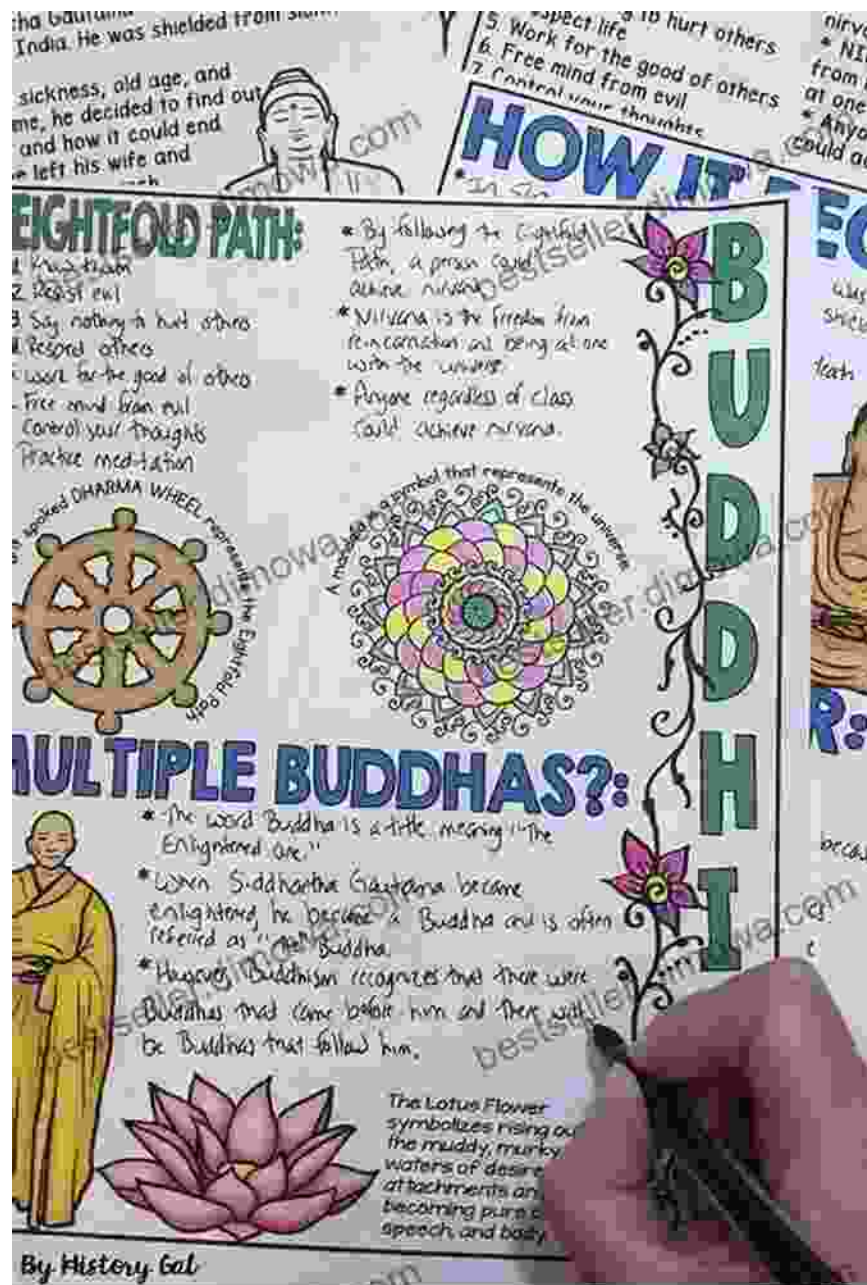 India. He was shielded from
sickness, old age, and
me, he decided to find out
and how it could end
left his wife and
spect life
to hurt others
5. Work for the good of others
6. Free mind from evil
7. Control your thoughts
HOW IT
EIGHTFOLD PATH:
2. Resist evil
3. Say nothing to hurt others
Respect others
Work for the good of others
Free mind from evil
Control your thoughts
Practice meditation
* By following the Eightfold
Path, a person could
achieve nirvana
* Nirvana is the freedom from
reincarnation and being at one
with the universe.
* Anyone regardless of class
could achieve nirvana.
BUDDHI
spoked DHARMA WHEEL represents the Eightfold Path
A mandala is a symbol that represents the universe
MULTIPLE BUDDHAS?:
* The word Buddha is a title meaning "The
Enlightened One."
* When Siddhartha Gautama became
enlightened, he became a Buddha and is often
referred as "The Buddha.
* However, Buddhism recognizes that there were
Buddhas that came before him and there will
be Buddhas that follow him.
The Lotus Flower
symbolizes rising
the muddy, murky
waters of desire
attachments
becoming pure
speech, and body
By History Gal
R:
death
bestseller.dimowa.com